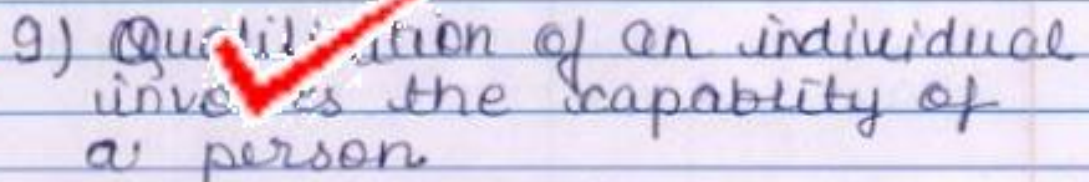 9) Qualification of an individual
involves the capablity of
a person.